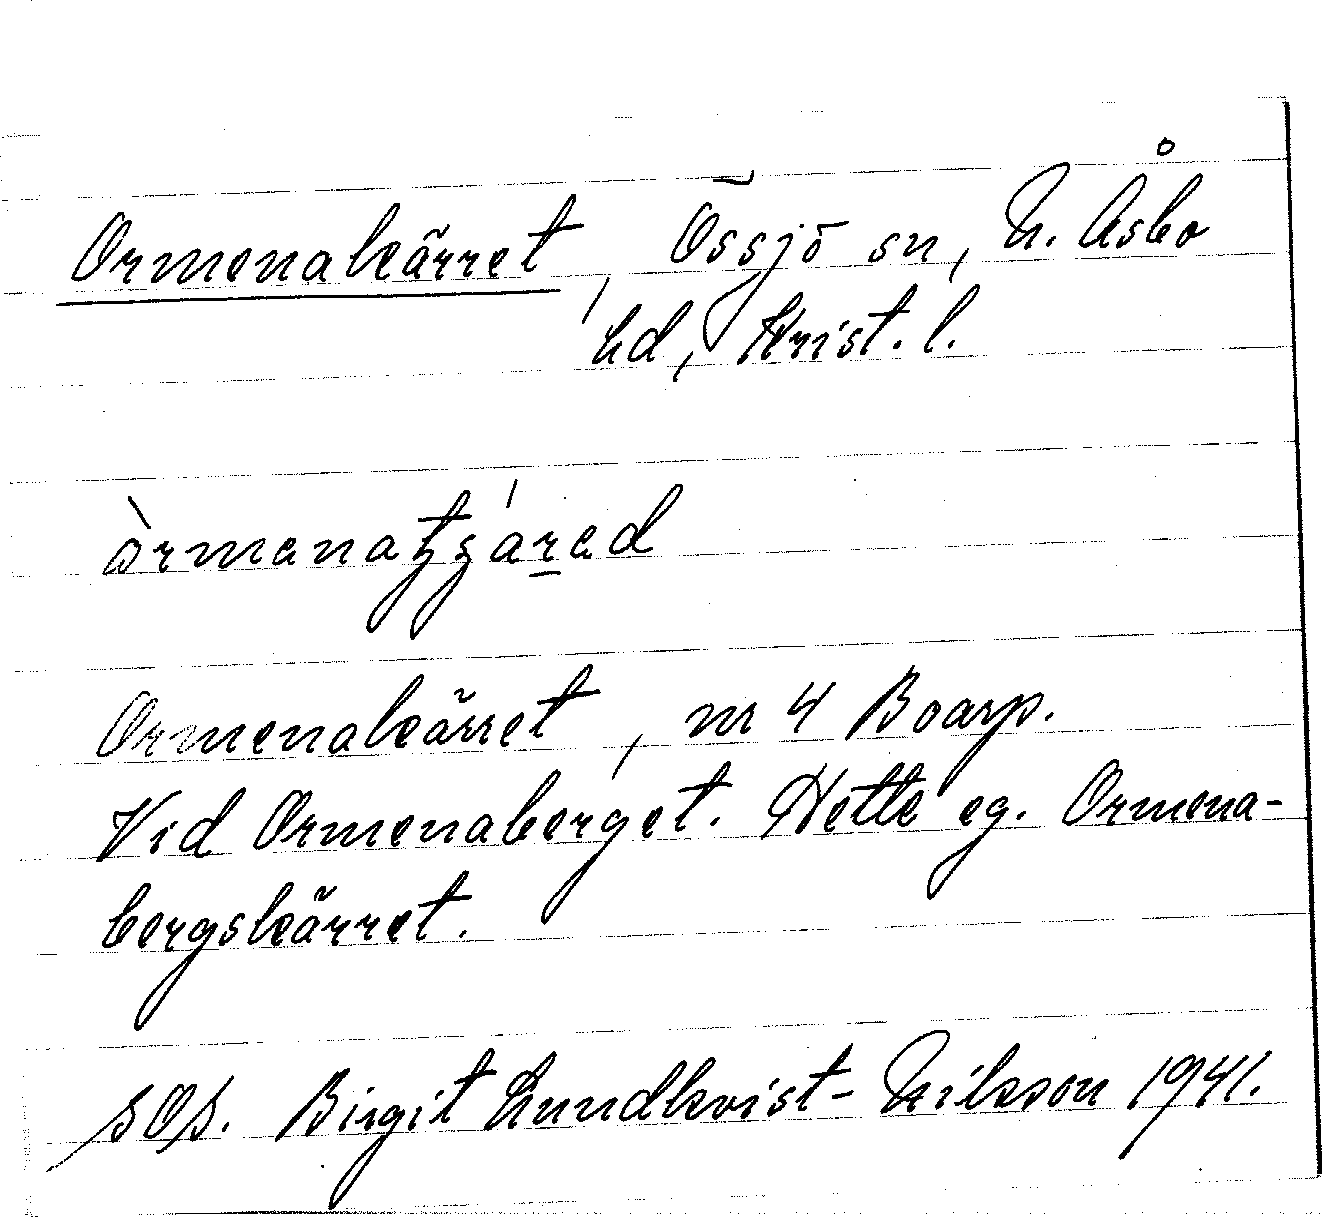 Ormenakärret, Össjö sn, N. Åsbo
hd, Krist. l.
òrmenatʒáred
Ormenakärret, nr 4 Boarp.
Vid Ormenaberget. Hette eg. Ormena-
bergskärret.
SOS. Birgit Lundkvist-Nilsson 1941.